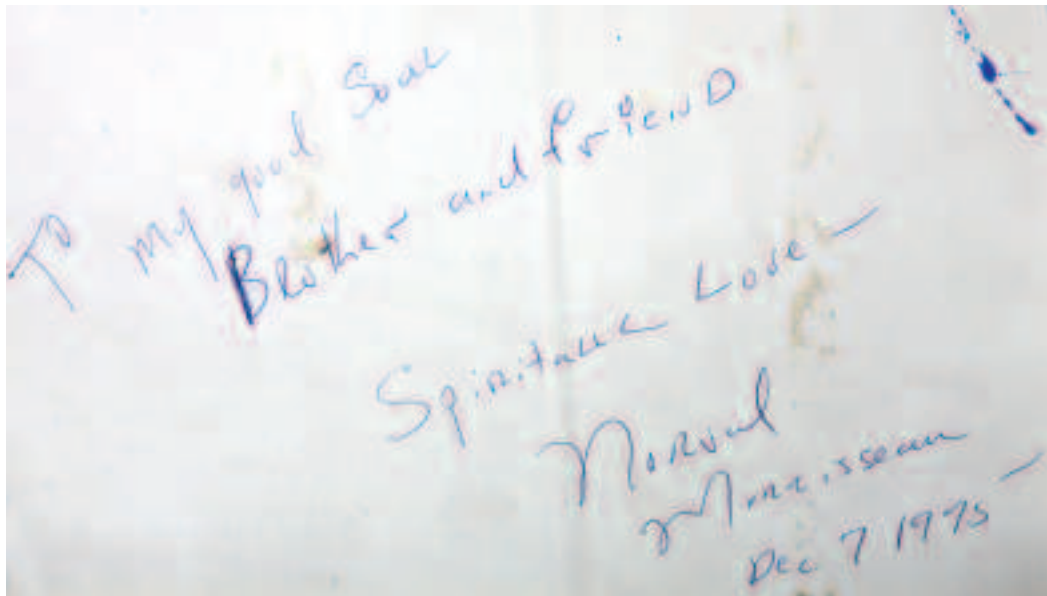 To my good Soul
Brother and friend
Spiritual Love
Norval
Morrisseau
Dec 7 1975